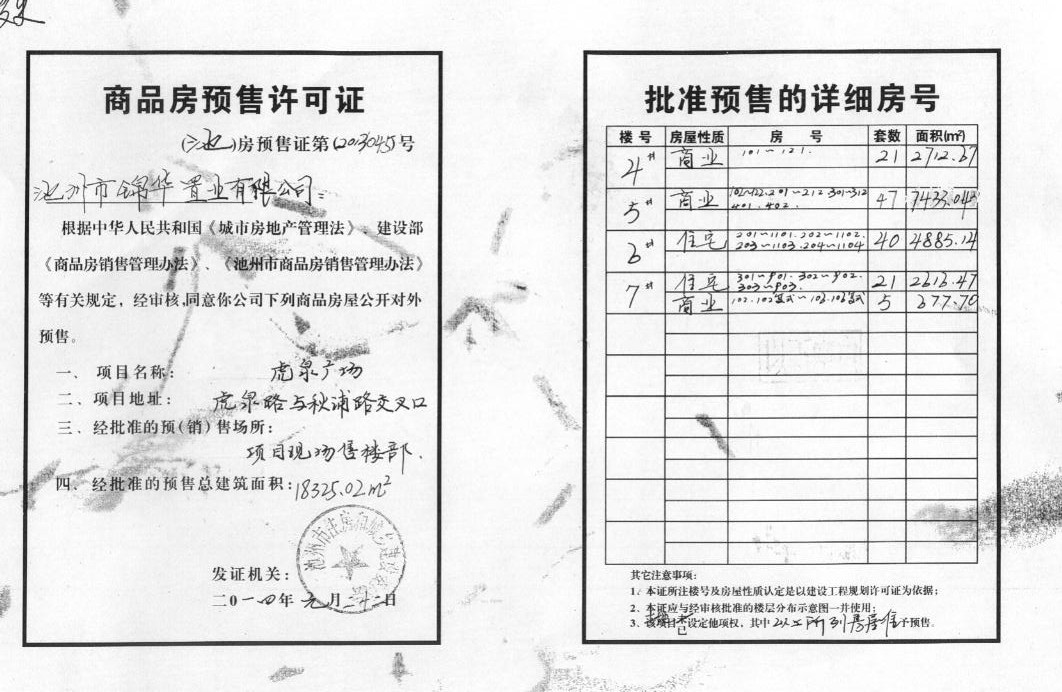 商品房预售许可证
(池)房预售证第(2013045)号
池州市锦华置业有限公司:
根据中华人民共和国《城市房地产管理法》、建设部
《商品房销售管理办法》、《池州市商品房销售管理办法》
等有关规定，经审核,同意你公司下列商品房屋公开对外
预售。
一、 项目名称: 虎泉广场
二、项目地址: 虎泉路与秋浦路交叉口
三、经批准的预(销)售场所:
项目现场售楼部.
四、经批准的预售总建筑面积:18325.02m²
发证机关:
二0一四年元月二十二日
批准预售的详细房号
楼号 房屋性质 房 号 套数 面积(m²)
4# 商业 101~121. 21 2712.67
5# 商业 201~212 301~312 47 7433.04
401.402.
6# 住宅 201~1101.202~1102. 40 4885.14
203~1103.204~1104
7# 住宅 301~901.302~902. 21 2613.47
303~903.
商业 5 677.70
其它注意事项:
1、本证所注楼号及房屋性质认定是以建设工程规划许可证为依据;
2、本证应与经审核批准的楼层分布示意图一并使用;
3、该项目 设定他项权，其中 以上所列房屋 予预售。